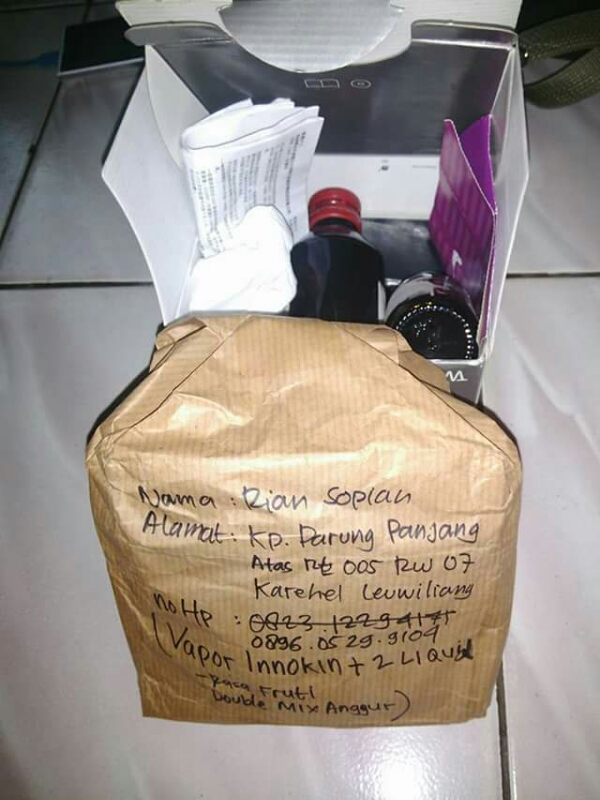 Nama : Rian Sopian
Alamat : Kp. Parung Panjang
Atas Rt 005 RW 07
Karehel Leuwiliang
no Hp :
0896.0529.9109
(Vapor Innokin + 2 Liquid
- Rasa Fruti
Double Mix Anggur)